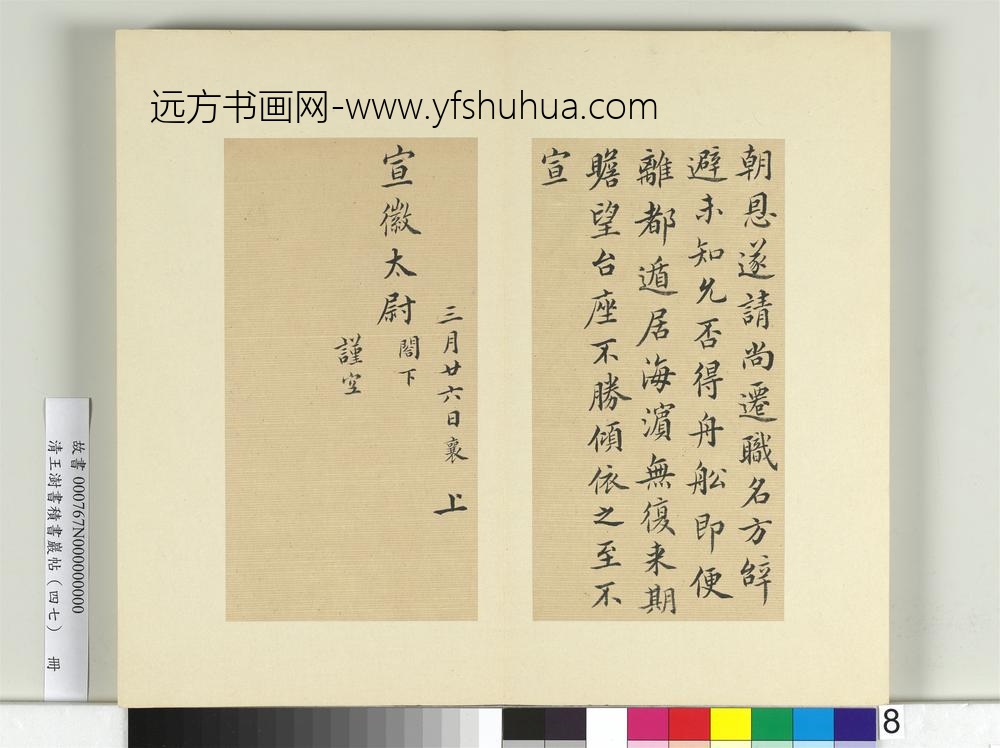 远方书画网-www.yfshuhua.com
朝恩遂請尚遷職名方辝
避未知允否得舟舩即便
離都遁居海濵無復来期
瞻望台座不勝傾依之至不
宣
三月廿六日襄上
宣徽太尉閤下
謹空
故書 000767N000000000
清王澍書積書巖帖（四七） 冊
8